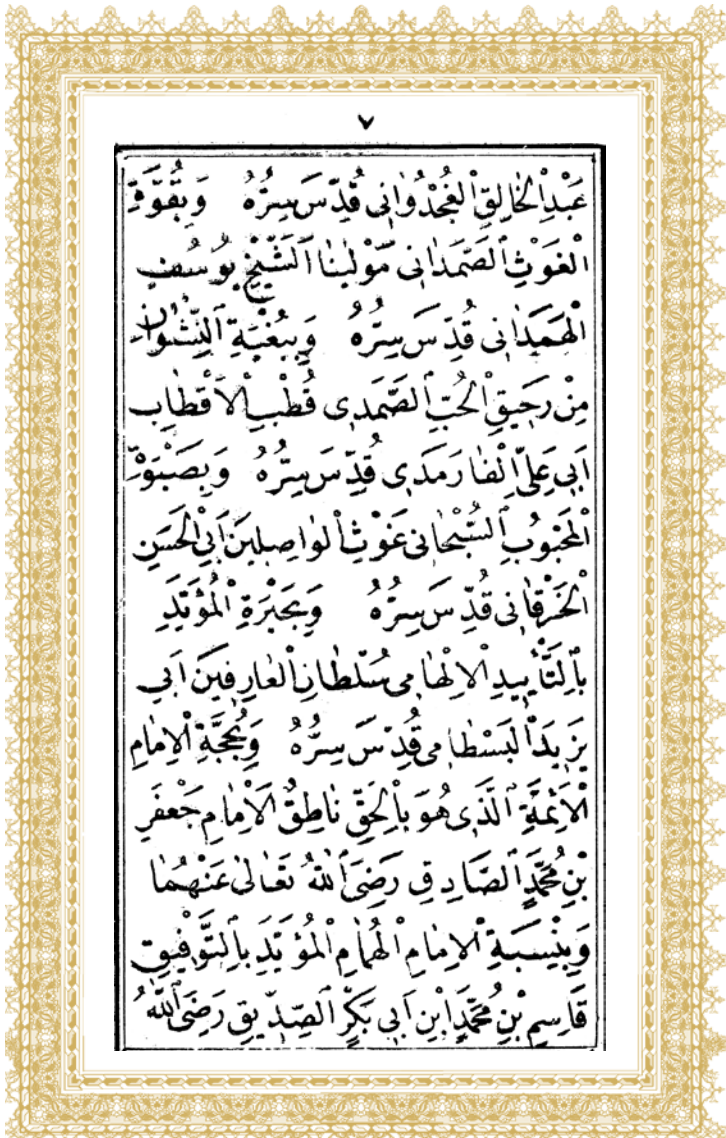 ٧
عَبْدِ الْخَالِقِ الْغُجْدُوَانِى قُدِّسَ سِرُّهُ وَبِقُوَّةِ
الْغَوْثِ الصَّمَدَانِى مَوْلٰينَا الشَّيْخِ يُوسُفِ
الْهَمَدَانِى قُدِّسَ سِرُّهُ وَبِبُغْيَةِ النِّشْوَانِ
مِنْ رَحِيقِ الْحُبِّ الصَّمَدِى قُطْبِ الْاَقْطَابِ
اَبِى عَلِىِّ الْفَارَمَدِى قُدِّسَ سِرُّهُ وَبِصَبْوَةِ
الْمَحْبُوبِ السُّبْحَانِى غَوْثِ الْوَاصِلِينَ اَبِى الْحَسَنِ
الْخَرْقَانِى قُدِّسَ سِرُّهُ وَبِحَبْرَةِ الْمُؤَيَّدِ
بِالتَّأْيِيدِ الْاِلْهَامِى سُلْطَانِ الْعَارِفِينَ اَبِى
يَزِيدَ الْبَسْطَامِى قُدِّسَ سِرُّهُ وَبِحُجَّةِ الْاِمَامِ
الْاَئِمَّةِ الَّذِى هُوَ بِالْحَقِّ نَاطِقُ الْاِمَامِ جَعْفَرِ
بْنِ مُحَمَّدٍ الصَّادِقِ رَضِىَ اللّٰهُ تَعَالٰى عَنْهُمَا
وَبِنِسْبَةِ الْاِمَامِ الْهُمَامِ الْمُؤَيَّدِ بِالتَّوْفِيقِ
قَاسِمِ بْنِ مُحَمَّدِ ابْنِ اَبِى بَكْرِ الصِّدِّيقِ رَضِىَ اللّٰهُ